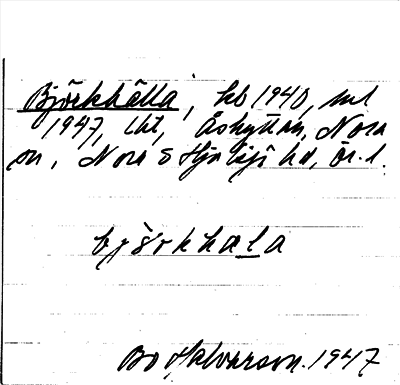 Björkhälla, kb 1940, ml
1947, lht, Åshyttan, Nora
sn, Nora o Hjulsjö hd, Ör. l.
björkhala
Bo Halvarson. 1947